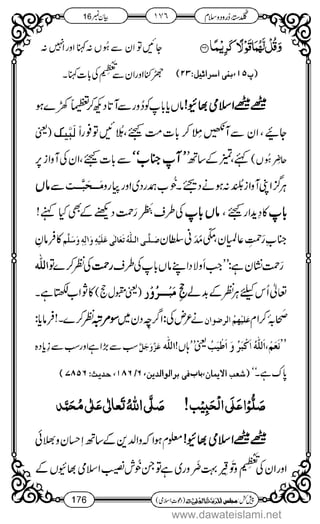 بیان نمبر 16 ۱۷٦ گلدستۂ درود و سلام
وَقُلْ لَّهُمَا قَوْلًا كَرِیْمًا جائیں تو ان سے ہُوں نہ کہنا اور انہیں نہ
(پ۱۵، بنی اسرائیل: ۲۳) جھڑکنا اور ان سے تعظیم کی بات کہنا۔
میٹھے میٹھے اسلامی بھائیو! ماں یا باپ کو دُور سے آتا دیکھ کر تعظیماً کھڑے ہو
جائیے، ان سے آنکھیں ملا کر بات مت کیجئے، بُلائیں تو فوراً لَبَّیْک (یعنی
حاضر ہوں) کہئے، تمیز کے ساتھ ’’آپ جناب‘‘ سے بات کیجئے، ان کی آواز پر
ہرگز اپنی آواز بُلند نہ ہونے دیجئے۔ خوب ہمدردی اور پیار و مَحَبَّت سے ماں
باپ کا دیدار کیجئے، ماں باپ کی طرف بنظرِ رَحمت دیکھنے کے بھی کیا کہنے!
جنابِ رَحمتِ عالمیان، مکّی مدَنی سلطان صَلَّی اللہُ تَعَالٰی عَلَیْہِ وَاٰلِہٖ وَسَلَّم کا فرمانِ
رَحمت نشان ہے: ’’جب اَولاد اپنے ماں باپ کی طرف رحمت کی نظر کرے تو اللہ
تعالیٰ اُس کیلئے ہر نظر کے بدلے حجِّ مَبرُور (یعنی مقبول حج) کا ثواب لکھتا ہے۔
صحابۂ کرام عَلَیْہِمُ الرِّضْوَان نے عرض کی: اگرچہ دن میں سو مرتبہ نظر کرے۔! فرمایا:
’’نَعَمْ، اَللہُ اَکْبَرُ وَ اَطْیَبُ یعنی ’’ہاں! اللہ عَزَّوَجَلَّ سب سے بڑا ہے اور سب سے زیادہ
پاک ہے۔‘‘ (شعب الایمان، باب فی بر الوالدین، ٦/۱۸٦، حدیث: ۷۸۵٦)
صَلُّوْا عَلَی الْحَبِیْب! صَلَّی اللہُ تَعَالٰی عَلٰی مُحَمَّد
میٹھے میٹھے اسلامی بھائیو! معلوم ہوا کہ والدین کے ساتھ اِحسان و بھلائی
اور ان کی تعظیم و توقیر بہت ضَروری ہے تو جن خوش نصیب اسلامی بھائیوں کے
176 پیش کش: مجلس (دعوتِ اسلامی)
www.dawateislami.net